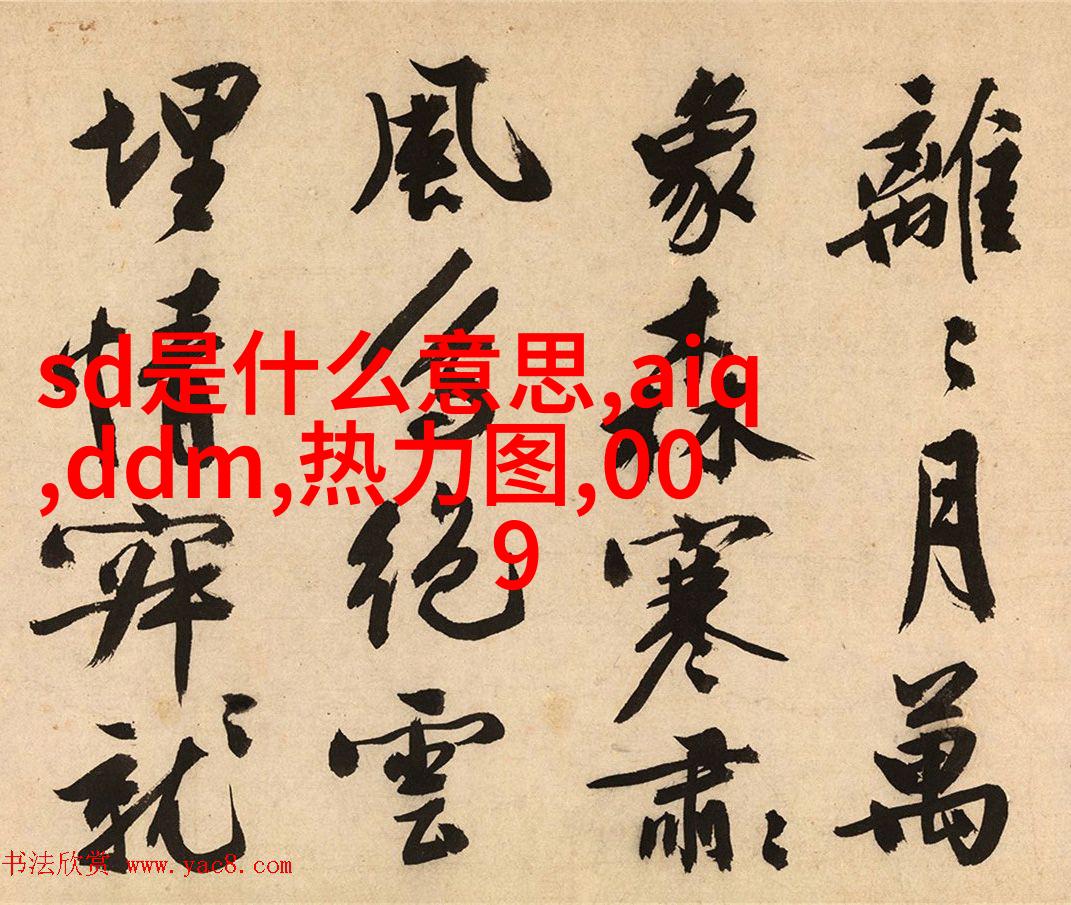 離〻月萬
象森寒肅〻
風絕雲
埋情穽〻就
sd是什么意思,aiq
,ddm,热力图,00
9
书法欣赏 www.yac8.com